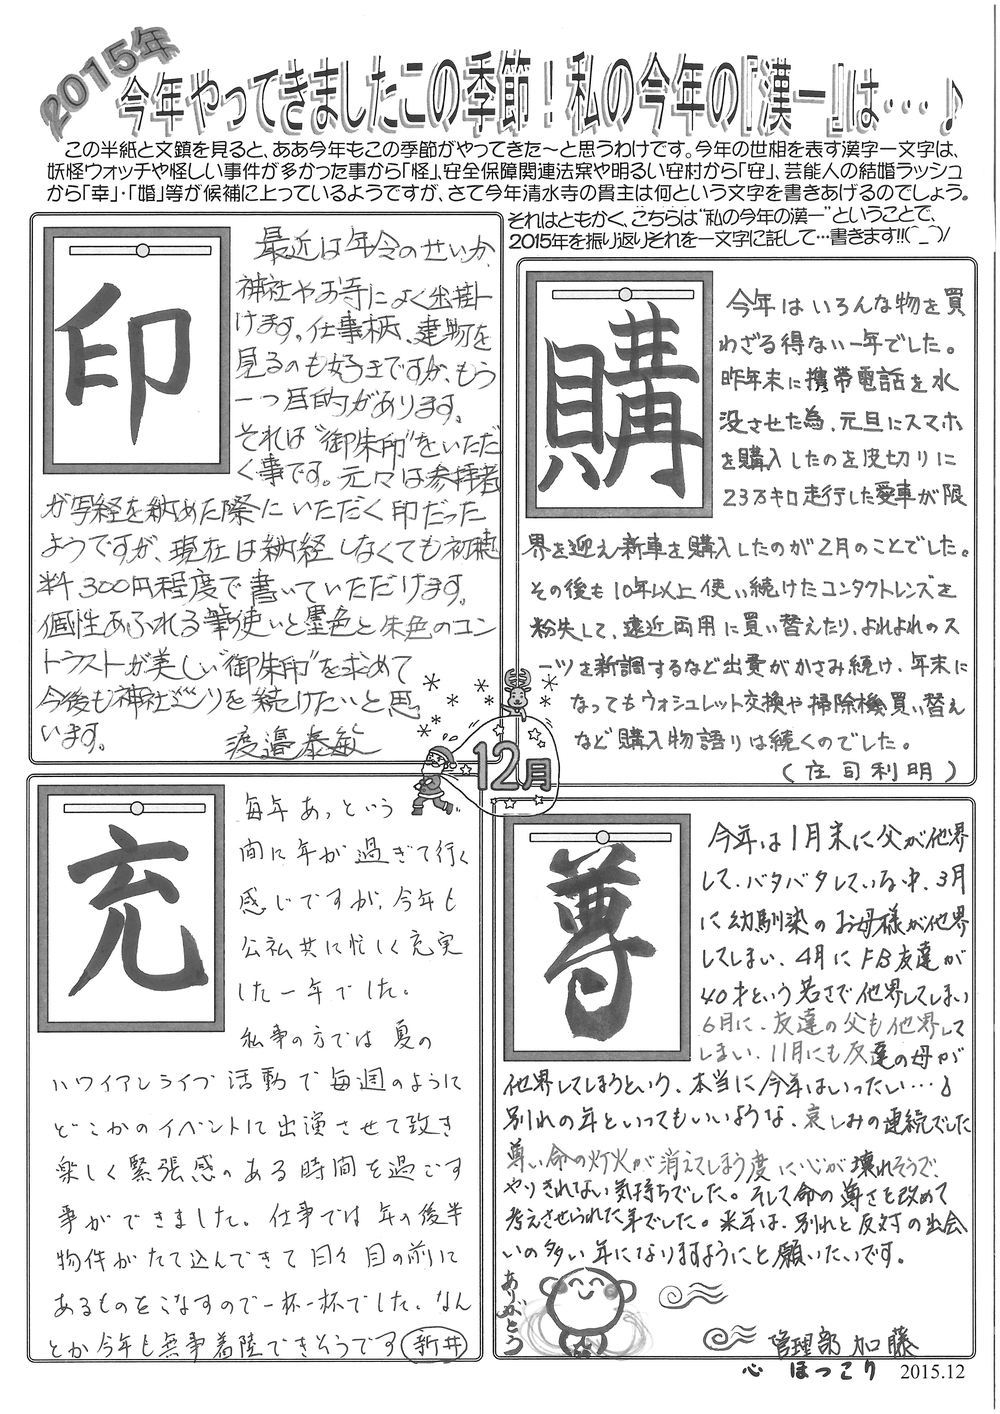 2015年
今年やってきましたこの季節！私の今年の『漢一』は…♪
この半紙と文鎮を見ると、ああ今年もこの季節がやってきた～と思うわけです。今年の世相を表す漢字一文字は、
妖怪ウォッチや怪しい事件が多かった事から「怪」、安全保障関連法案や明るい安村から「安」、芸能人の結婚ラッシュ
から「幸」・「婚」等が候補に上っているようですが、さて今年清水寺の貫主は何という文字を書きあげるのでしょう。
それはともかく、こちらは“私の今年の漢一”ということで、
2015年を振り返りそれを一文字に託して…書きます!!(^_^)/
印
最近は年令のせいか、
神社やお寺によく出掛
けます。仕事柄、建物を
見るのも好きですが、もう
一つ目的があります。
それは“御朱印”をいただ
く事です。元々は参拝者
が写経を納めた際にいただく印だった
ようですが、現在は納経しなくても初穂
料300円程度で書いていただけます。
個性あふれる筆使いと墨色と朱色のコン
トラストが美しい“御朱印”を求めて
今後も神社巡りを続けたいと思
います。
渡邉泰敏
購
今年はいろんな物を買
わざる得ない一年でした。
昨年末に携帯電話を水
没させた為、元旦にスマホ
を購入したのを皮切りに
23万キロ走行した愛車が限
界を迎え新車を購入したのが2月のことでした。
その後も10年以上使い続けたコンタクトレンズを
紛失して、遠近両用に買い替えたり、よれよれのス
ーツを新調するなど出費がかさみ続け、年末に
なってもウォシュレット交換や掃除機買い替え
など購入物語りは続くのでした。
(庄司利明)
12月
充
毎年あっという
間に年が過ぎて行く
感じですが、今年も
公私共に忙しく充実
した一年でした。
私事の方では夏の
ハワイアンライブ活動で毎週のように
どこかのイベントに出演させて頂き
楽しく緊張感のある時間を過ごす
事ができました。仕事では年の後半
物件がたて込んできて日々目の前に
あるものをこなすので一杯一杯でした。なん
とか今年も無事着陸できそうです 新井
尊
今年は1月末に父が他界
して、バタバタしている中、3月
に幼馴染のお母様が他界
してしまい、4月にFB友達が
40才という若さで他界してしまい
6月に、友達の父も他界して
しまい、11月にも友達の母が
他界してしまうという、本当に今年はいったい…。
別れの年といってもいいような、哀しみの連続でした
尊い命の灯火が消えてしまう度に心が壊れそうで、
やりきれない気持ちでした。そして命の尊さを改めて
考えさせられた年でした。来年は、別れと反対の出会
いの多い年になりますようにと願いたいです。
ありがとう
管理部 加藤
心 ほっこり 2015.12